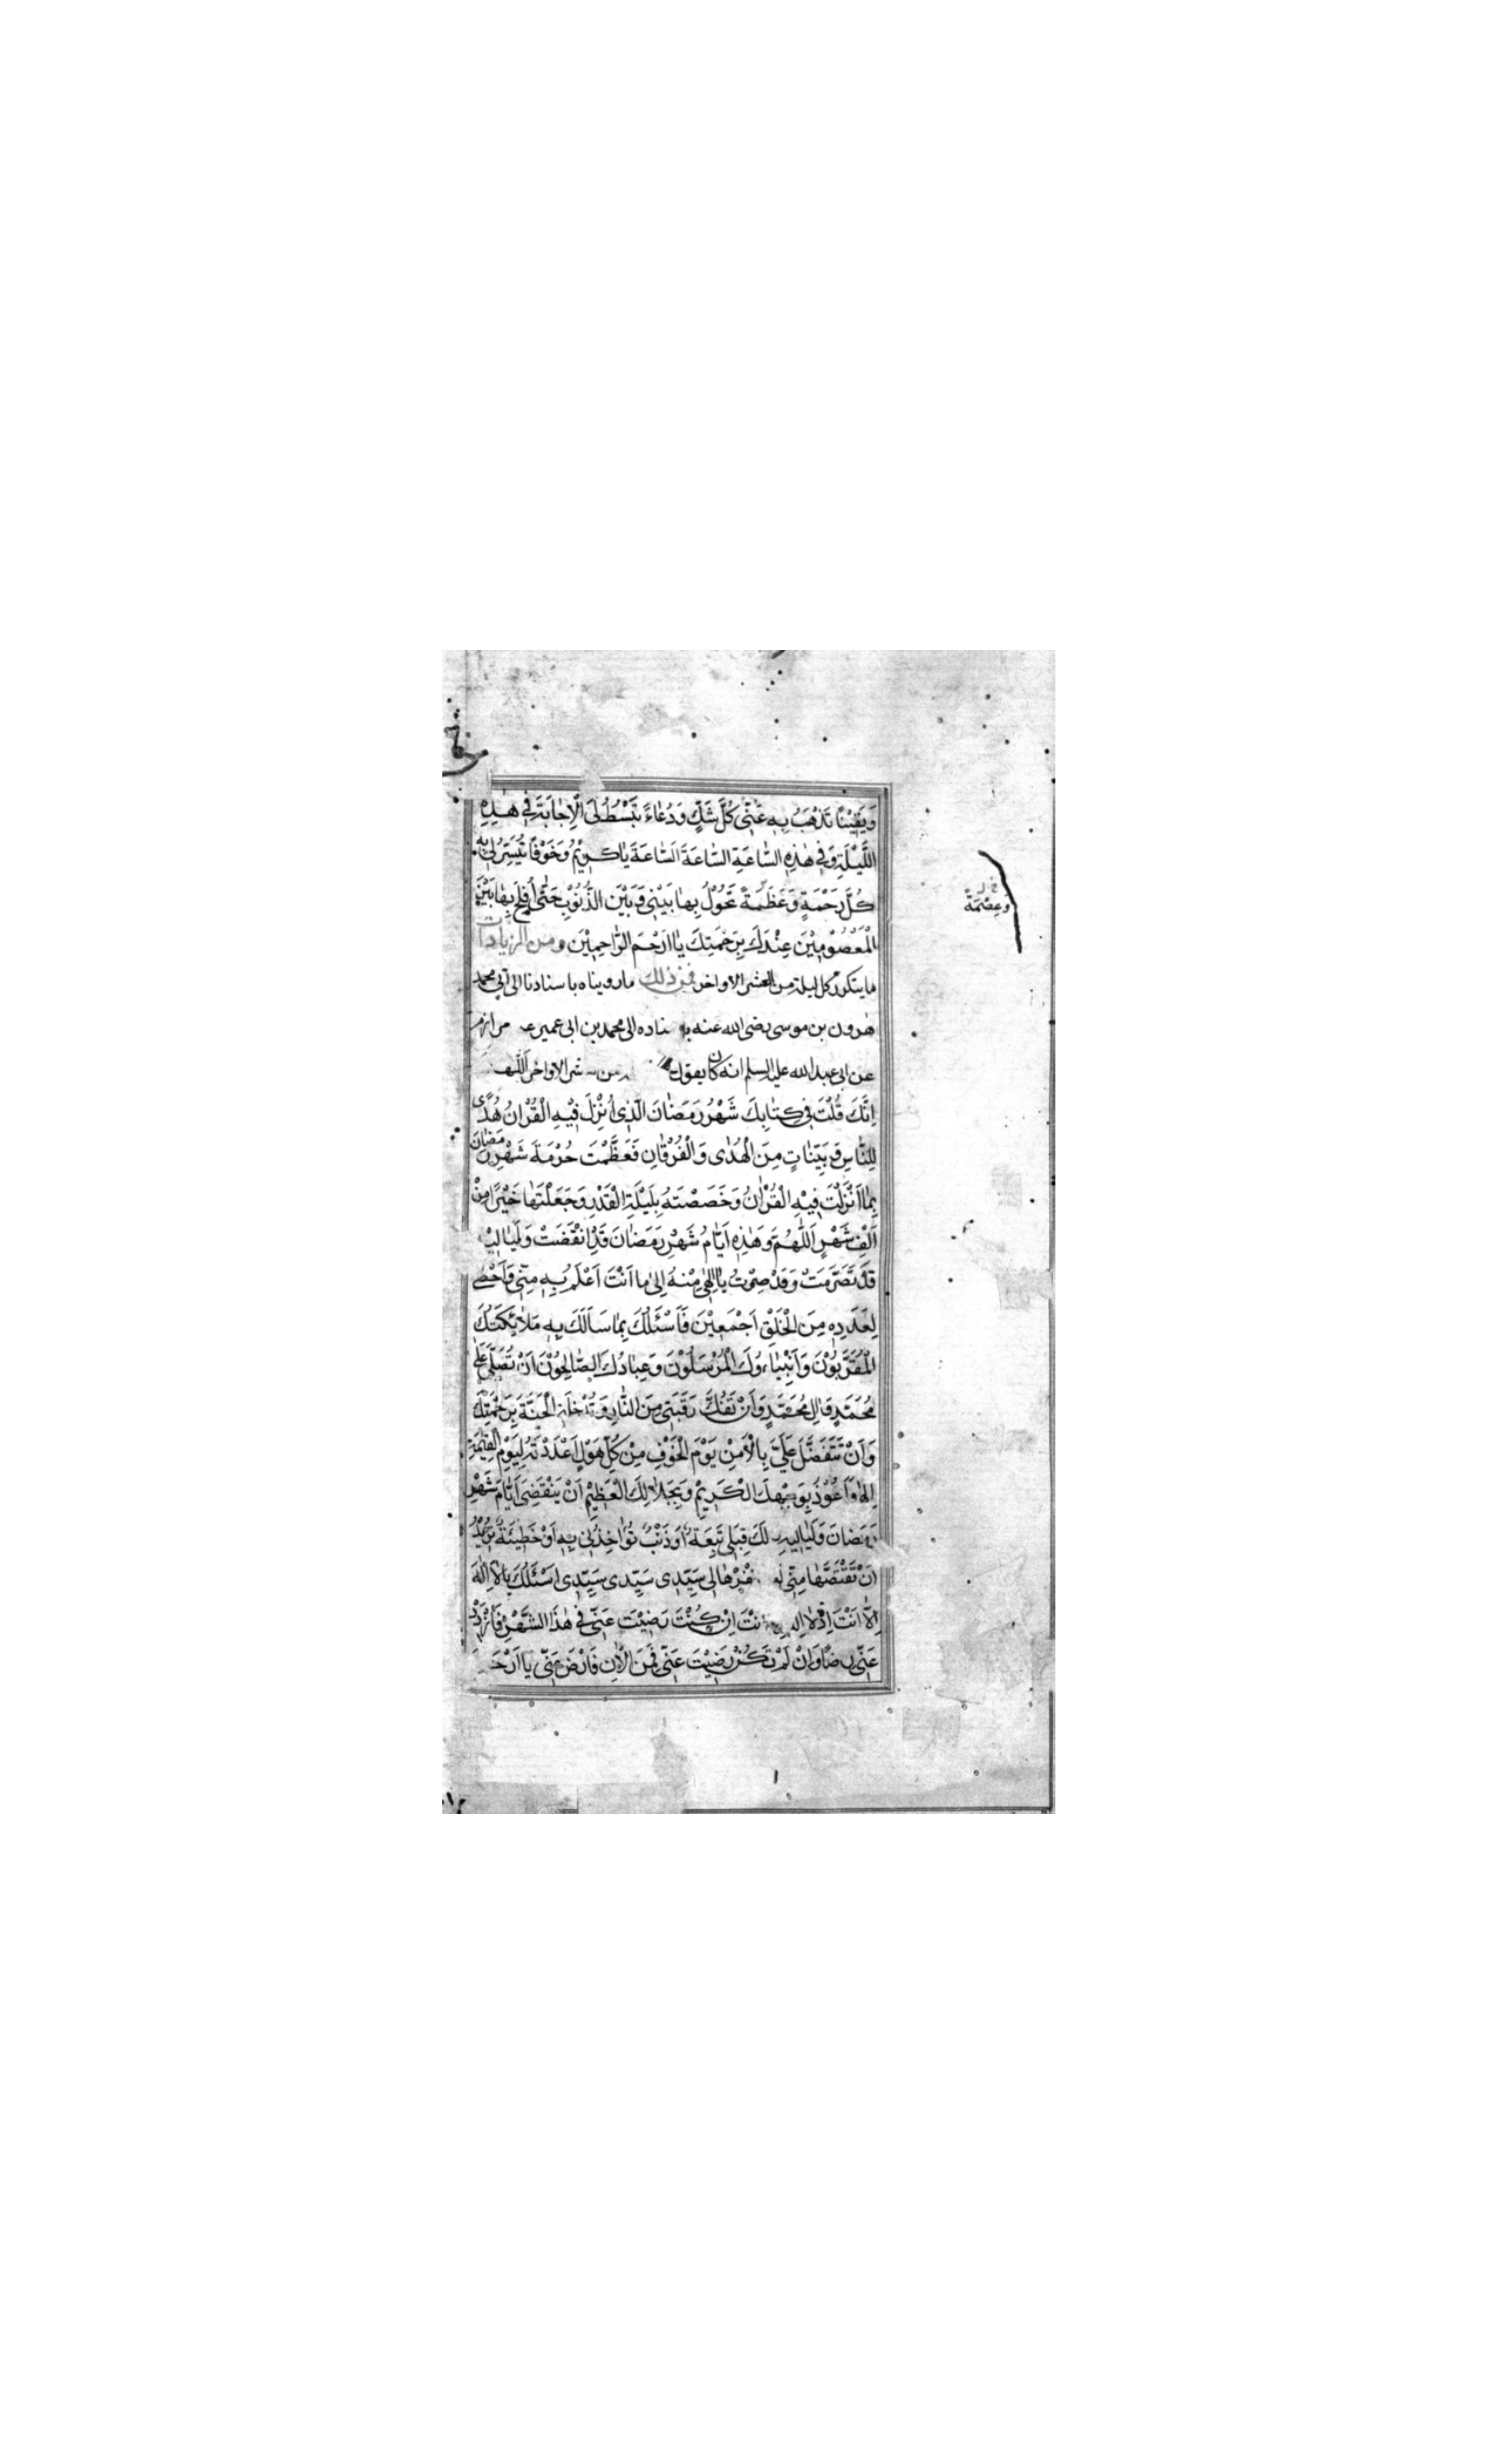 وَيَقِيْنًا تَذْهَبُ بِهِ عَنّى كُلَّ شَكٍّ وَدُعَاءً تَبْسُطُ لِىَ الْاِجَابَةَ فِى هٰذِهِ
اللَّيْلَةِ وَفِى هٰذِهِ السَّاعَةِ السَّاعَةَ السَّاعَةَ يَا كَرِيْمُ وَخَوْفًا تُيَسِّرُ لِى بِهِ
كُلَّ رَحْمَةٍ وَعَظَمَةً تَحُوْلُ بِهَا بَيْنِى وَبَيْنَ الذُّنُوْبِ حَتّٰى اُفْلِحَ بِهَا بَيْنَ
خ ل
وَعِصْمَةً
الْمَعْصُوْمِيْنَ عِنْدَكَ بِرَحْمَتِكَ يَا اَرْحَمَ الرَّاحِمِيْنَ ومن الزيادات
ما يتكرر كل ليلة من العشر الاواخر فمن ذلك ما رويناه باسنادنا الى ابى محمد
هرون بن موسى رضى الله عنه ناده الى محمد بن ابى عمير مرازم
عن ابى عبد الله عليه السلم انه كان يقول من شر الاواخر اللّٰهم
اِنَّكَ قُلْتَ فِى كِتَابِكَ شَهْرُ رَمَضَانَ الَّذِى اُنْزِلَ فِيْهِ الْقُرْانُ هُدًى
لِلنَّاسِ وَبَيِّنَاتٍ مِنَ الْهُدٰى وَالْفُرْقَانِ فَعَظَّمْتَ حُرْمَةَ شَهْرِ رَمَضَانَ
بِمَا اَنْزَلْتَ فِيْهِ الْقُرْانُ وَخَصَصْتَهُ بِلَيْلَةِ الْقَدْرِ وَجَعَلْتَهَا خَيْرًا مِنْ
اَلْفِ شَهْرٍ اَللّٰهُمَّ وَهٰذِهِ اَيَّامُ شَهْرِ رَمَضَانَ قَدِ انْقَضَتْ وَلَيَالِيْهِ
قَدْ تَصَرَّمَتْ وَقَدْ صِرْتُ يَا اِلٰهِى مِنْهُ اِلٰى مَا اَنْتَ اَعْلَمُ بِهِ مِنّى وَاَحْصٰى
لِعَدَدِهِ مِنَ الْخَلْقِ اَجْمَعِيْنَ فَاَسْئَلُكَ بِمَا سَاَلَكَ بِهِ مَلٰائِكَتُكَ
الْمُقَرَّبُوْنَ وَاَنْبِيَاءُكَ الْمُرْسَلُوْنَ وَعِبَادُكَ الصَّالِحُوْنَ اَنْ تُصَلِّىَ عَلٰى
مُحَمَّدٍ وَالِ مُحَمَّدٍ وَاَنْ تَفُكَّ رَقَبَتِى مِنَ النَّارِ وَتُدْخِلَنِى الْجَنَّةَ بِرَحْمَتِكَ
وَاَنْ تَتَفَضَّلَ عَلَىَّ بِالْاَمْنِ يَوْمَ الْخَوْفِ مِنْ كُلِّ هَوْلٍ اَعْدَدْتَهُ لِيَوْمِ الْقِيٰمَةِ
اِلٰهِى وَاَعُوْذُ بِوَجْهِكَ الْكَرِيْمِ وَبِجَلَالِكَ الْعَظِيْمِ اَنْ يَنْقَضِىَ اَيَّامُ شَهْرِ
رَمَضَانَ وَلَيَالِيْهِ لَكَ قِبَلِى تَبِعَةٌ اَوْ ذَنْبٌ تُؤَاخِذُنِى بِهِ اَوْ خَطِيْئَةٌ تُرِيْدُ
اَنْ تَقْتَصَّهَا مِنّى لَمْ تَغْفِرْهَا لِى سَيِّدِى سَيِّدِى سَيِّدِى اَسْئَلُكَ يَا لَا اِلٰهَ
اِلَّا اَنْتَ اِذْ لَا اِلٰهَ اِلَّا اَنْتَ اِنْ كُنْتَ رَضِيْتَ عَنّى فِى هٰذَا الشَّهْرِ فَازْدَدْ
عَنّى رِضًا وَاِنْ لَمْ تَكُنْ رَضِيْتَ عَنّى فَمِنَ الْاٰنِ فَارْضَ عَنّى يَا اَرْحَمَ